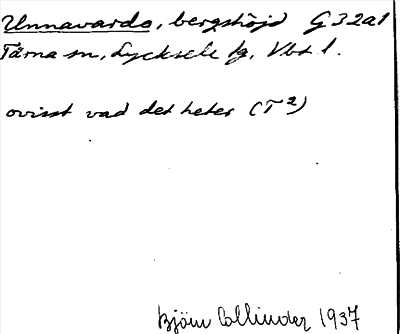 Unnavardo, bergshöjd G 32a1
Tärna sn, Lycksele tg, Vbt l.
ovisst vad det heter (T²)
Björn Collinder 1937